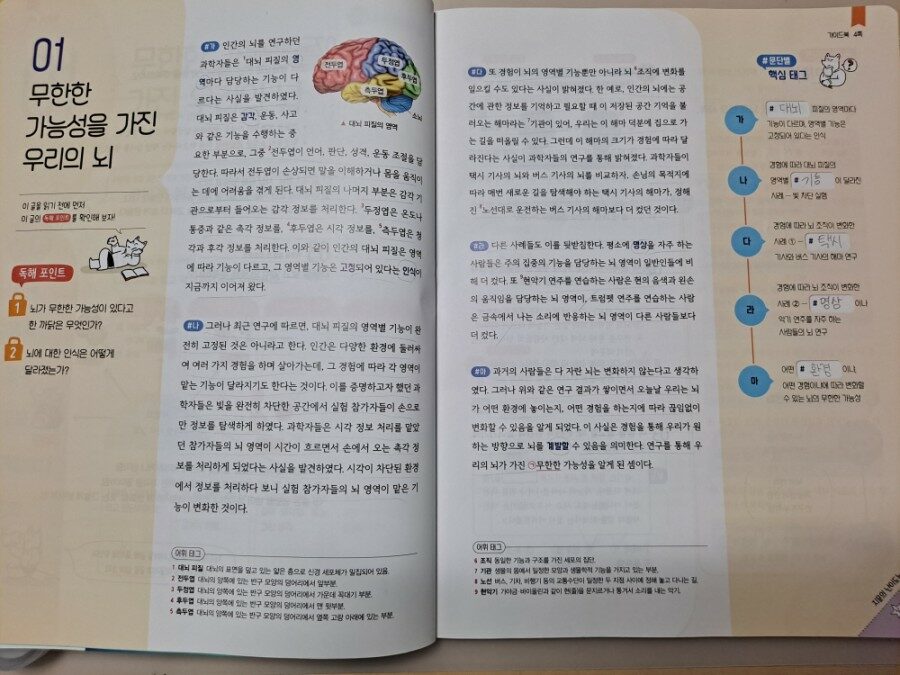 01
무한한
가능성을 가진
우리의 뇌
이 글을 읽기 전에 먼저
이 글의 독해 포인트를 확인해 보자!
독해 포인트
1 뇌가 무한한 가능성이 있다고
한 까닭은 무엇인가?
2 뇌에 대한 인식은 어떻게
달라졌는가?
#가 인간의 뇌를 연구하던
과학자들은 1대뇌 피질의 영
역마다 담당하는 기능이 다
르다는 사실을 발견하였다.
대뇌 피질은 감각, 운동, 사고
와 같은 기능을 수행하는 중
요한 부분으로, 그중 2전두엽이 언어, 판단, 성격, 운동 조절을 담
당한다. 따라서 전두엽이 손상되면 말을 이해하거나 몸을 움직이
는 데에 어려움을 겪게 된다. 대뇌 피질의 나머지 부분은 감각 기
관으로부터 들어오는 감각 정보를 처리한다. 3두정엽은 온도나
통증과 같은 촉각 정보를, 4후두엽은 시각 정보를, 5측두엽은 청
각과 후각 정보를 처리한다. 이와 같이 인간의 대뇌 피질은 영역
에 따라 기능이 다르고, 그 영역별 기능은 고정되어 있다는 인식이
지금까지 이어져 왔다.
전두엽
두정엽
후두엽
측두엽
소뇌
▲ 대뇌 피질의 영역
#나 그러나 최근 연구에 따르면, 대뇌 피질의 영역별 기능이 완
전히 고정된 것은 아니라고 한다. 인간은 다양한 환경에 둘러싸
여 여러 가지 경험을 하며 살아가는데, 그 경험에 따라 각 영역이
맡는 기능이 달라지기도 한다는 것이다. 이를 증명하고자 했던 과
학자들은 빛을 완전히 차단한 공간에서 실험 참가자들이 손으로
만 정보를 탐색하게 하였다. 과학자들은 시각 정보 처리를 맡았
던 참가자들의 뇌 영역이 시간이 흐르면서 손에서 오는 촉각 정
보를 처리하게 되었다는 사실을 발견하였다. 시각이 차단된 환경
에서 정보를 처리하다 보니 실험 참가자들의 뇌 영역이 맡은 기
능이 변화한 것이다.
어휘 태그
1 대뇌 피질 대뇌의 표면을 덮고 있는 얇은 층으로 신경 세포체가 밀집되어 있음.
2 전두엽 대뇌의 양쪽에 있는 반구 모양의 덩어리에서 앞부분.
3 두정엽 대뇌의 양쪽에 있는 반구 모양의 덩어리에서 가운데 꼭대기 부분.
4 후두엽 대뇌의 양쪽에 있는 반구 모양의 덩어리에서 맨 뒷부분.
5 측두엽 대뇌의 양쪽에 있는 반구 모양의 덩어리에서 옆쪽 고랑 아래에 있는 부분.
#다 또 경험이 뇌의 영역별 기능뿐만 아니라 뇌 6조직에 변화를
일으킬 수도 있다는 사실이 밝혀졌다. 한 예로, 인간의 뇌에는 공
간에 관한 정보를 기억하고 필요할 때 이 저장된 공간 기억을 불
러오는 해마라는 7기관이 있어, 우리는 이 해마 덕분에 집으로 가
는 길을 떠올릴 수 있다. 그런데 이 해마의 크기가 경험에 따라 달
라진다는 사실이 과학자들의 연구를 통해 밝혀졌다. 과학자들이
택시 기사의 뇌와 버스 기사의 뇌를 비교하자, 손님의 목적지에
따라 매번 새로운 길을 탐색해야 하는 택시 기사의 해마가, 정해
진 8노선대로 운전하는 버스 기사의 해마보다 더 컸던 것이다.
#라 다른 사례들도 이를 뒷받침한다. 평소에 명상을 자주 하는
사람들은 주의 집중의 기능을 담당하는 뇌 영역이 일반인들에 비
해 더 컸다. 또 9현악기 연주를 연습하는 사람은 현의 음색과 왼손
의 움직임을 담당하는 뇌 영역이, 트럼펫 연주를 연습하는 사람
은 금속에서 나는 소리에 반응하는 뇌 영역이 다른 사람들보다
더 컸다.
#마 과거의 사람들은 다 자란 뇌는 변화하지 않는다고 생각하
였다. 그러나 위와 같은 연구 결과가 쌓이면서 오늘날 우리는 뇌
가 어떤 환경에 놓이는지, 어떤 경험을 하는지에 따라 끊임없이
변화할 수 있음을 알게 되었다. 이 사실은 경험을 통해 우리가 원
하는 방향으로 뇌를 계발할 수 있음을 의미한다. 연구를 통해 우
리의 뇌가 가진 ㉠무한한 가능성을 알게 된 셈이다.
어휘 태그
6 조직 동일한 기능과 구조를 가진 세포의 집단.
7 기관 생물의 몸에서 일정한 모양과 생물학적 기능을 가지고 있는 부분.
8 노선 버스, 기차, 비행기 등의 교통수단이 일정한 두 지점 사이에 정해 놓고 다니는 길.
9 현악기 가야금·바이올린과 같이 현(줄)을 문지르거나 퉁겨서 소리를 내는 악기.
가이드북 4쪽
#문단별
핵심 태그
가 # 대뇌 피질의 영역마다
기능이 다르며, 영역별 기능은
고정되어 있다는 인식
나 경험에 따라 대뇌 피질의
영역별 # 기능 이 달라진
사례 – 빛 차단 실험
다 경험에 따라 뇌 조직이 변화한
사례 ① – # 택시
기사와 버스 기사의 해마 연구
라 경험에 따라 뇌 조직이 변화한
사례 ② – # 명상 이나
악기 연주를 자주 하는
사람들의 뇌 연구
마 어떤 # 환경 이냐,
어떤 경험이냐에 따라 변화할
수 있는 뇌의 무한한 가능성